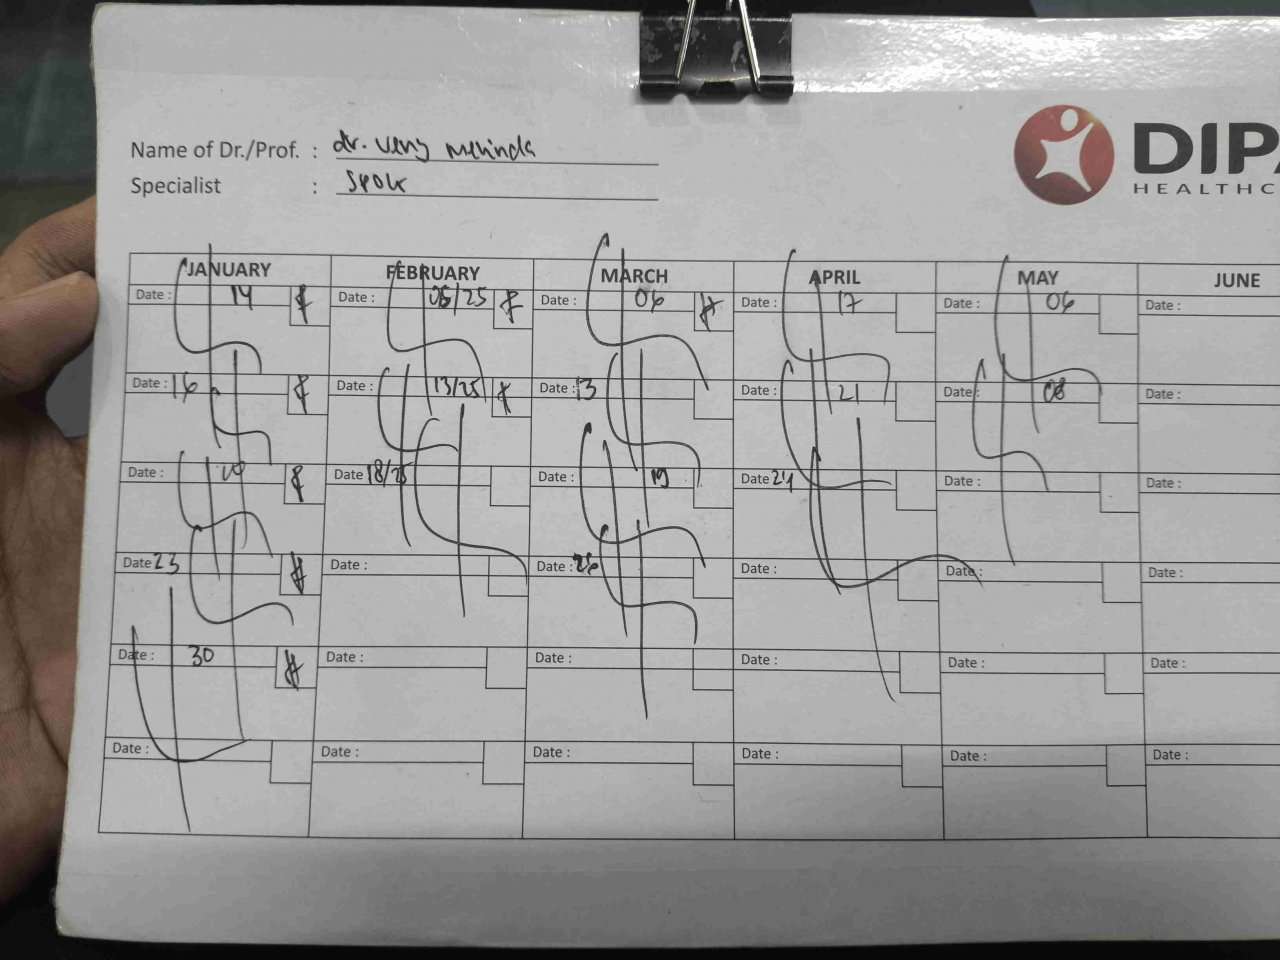 DIPA
HEALTHC
Name of Dr./Prof. : dr. Veny Melinda
Specialist : SPOK
JANUARY FEBRUARY MARCH APRIL MAY JUNE
Date : 14 Date : 05/25 Date : 06 Date : 17 Date : 06 Date :
Date : 16 Date : 13/25 Date : 13 Date : 21 Date : 08 Date :
Date : Date : 18/25 Date : 19 Date : 24 Date : Date :
Date : 23 Date : Date : 26 Date : Date : Date :
Date : 30 Date : Date : Date : Date : Date :
Date : Date : Date : Date : Date : Date :